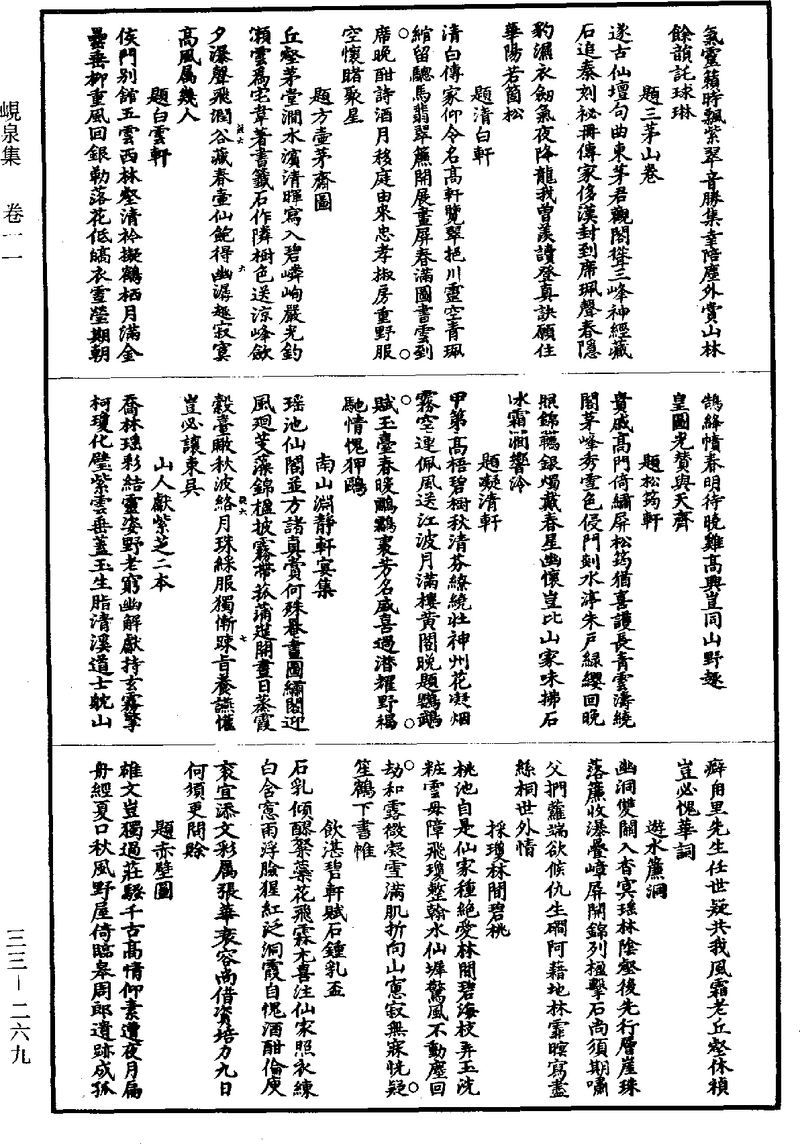 氣靈籟時飄紫翠音勝集幸陪塵外賞山林
餘韻詫球琳
題三茅山卷
邃古仙壇句曲東茅君觀閣聳三峰神經藏
石追秦刻祕冊傳家侈漢封到席珮聲春隱
豹濕衣劒氣夜降龍我曾羨讀登真訣願住
華陽若箇松
題清白軒
清白傳家仰令名高軒覽翠挹川靈空青珮
綰留驄馬翡翠簾開展畫屏春滿圖書雲到
席晚酣詩酒月移庭由來忠孝椒房重野服
空懷睹聚星
題方壺茅齋圖
丘壑茅堂澗水濱清暉寫入碧嶙峋嚴光釣
瀨雲爲宅韋著書籤石作隣樹色送涼峰欲
夕瀑聲飛澗谷藏春壺仙飽得幽潺趣寂寞
高風属幾人
題白雲軒
侯門別館五雲西林壑清衿擬鶴栖月滿金
罍垂柳重風回銀勒落花低縞衣雪瑩期朝
鵠絳幘春明待曉雞高興豈同山野趣
皇圖光贊與天齊
題松筠軒
貴戚高門倚繡屏松筠猶喜護長青雲濤繞
閣茅峰秀雪色侵門剡水渟朱戶綠纓回晚
眼錦韉銀燭戴春星幽懷豈比山家味拂石
冰霜澗響泠
題凝清軒
甲第高梧碧樹秋清芬繚繞壯神州花凝烟
霧空連佩風送江波月滿樓黄閣晚題鸚鵡
賦玉臺春暖鷫鸘裘芳名戚喜過潜耀野褐
馳情愧狎鷗
南山淵靜軒宴集
瑶池仙閣並方諸真賞何殊暴畫圖繡閣迎
風廻芰藻錦楹披霧帶菰蒲筵開晝日蒸霞
縠臺瞰秋波絡月珠綵服獨慚踈旨養讌懽
豈必讓東吴
山人獻紫芝二本
喬林瑶彩結靈姿野老窮幽解獻持玄霧擎
柯瓊化璧紫雲垂蓋玉生脂清溪道士眈山
癖甪里先生任世疑共我風霜老丘壑休禎
豈必愧華詞
遊水簾洞
幽洞雙關入杳冥瑶林陰壑後先行層崖珠
落簾收瀑疊嶂屏開錦列楹擊石尚須期嘯
父捫蘿端欲候仇生磵阿藉地林霏暝寫盡
絲桐世外情
採瓊林閣碧桃
桃池自是仙家種絶愛林閣碧海枝弄玉洗
粧雲母障飛瓊整翰水仙墀驚風不動塵回
劫和露微凝雪滿肌折向山窻寂無寐恍疑
笙鶴下書帷
飲湛碧軒賦石鍾乳盃
石乳傾醪聚蘂花飛霖尤喜注仙家照衣練
白含窻雨浮臉猩紅泛洞霞自愧酒酣倫庾
衮宜添文彩属張華衰容尚借資培力九日
何須更問賖
題赤壁圖
雄文豈獨過莊騷千古高情仰素遭夜月扁
舟經夏口秋風野屋倚臨皋周郎遺跡成孤
峴泉集 卷一一
三三—二六九